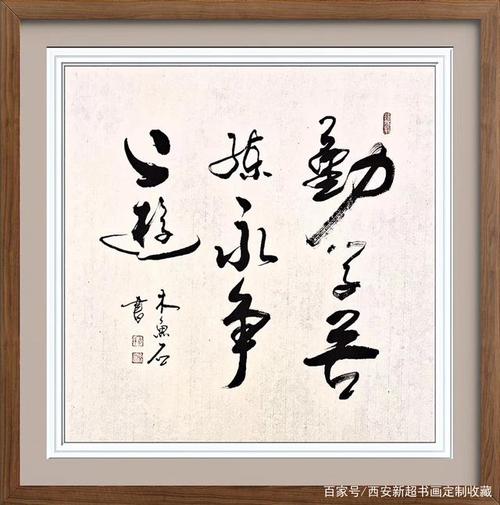 勤学苦
练永争
上游
木鱼石
書
百家号/西安新超书画定制收藏